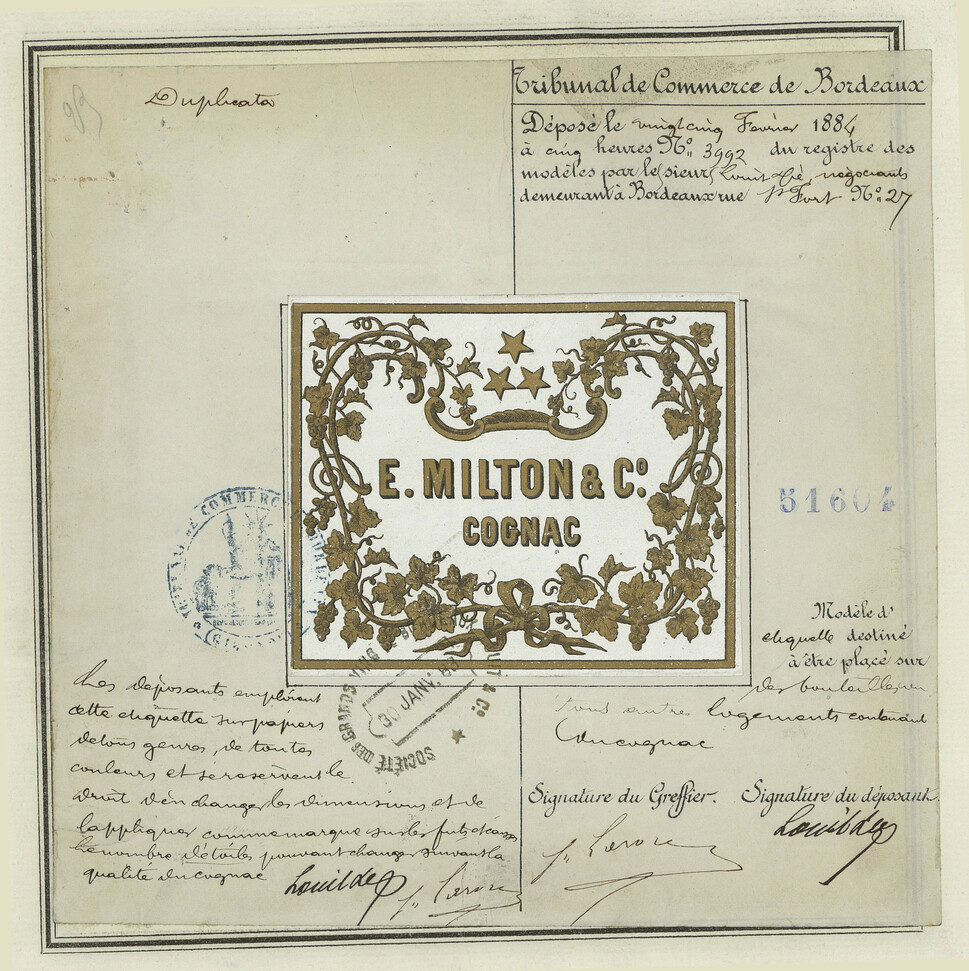 Duplicata
Tribunal de Commerce de Bordeaux
Déposé le vingt cinq Fevrier 1884
à cinq heures No. 3992 du registre des
modèles par le sieurs négociants
demeurant à Bordeaux rue St Fort No. 27
E. MILTON & Co.
COGNAC
51604
Modèle d'
étiquette destiné
à être placé sur
des bouteilles ou
tous autres logements contenant
du cognac
TRIBUNAL DE COMMERCE
SOCIÉTÉ DES GRANDS VINS
30 JANV. 83
& Co
Les déposants emploient
cette étiquette sur papiers
de tous genres de toutes
couleurs et se reservent le
droit d'en changer les dimensions et de
l'appliquer comme marque sur les futs et caisses
le nombre d'étoiles pouvant changer suivant la
qualité du cognac
Signature du Greffier. Signature du déposant.